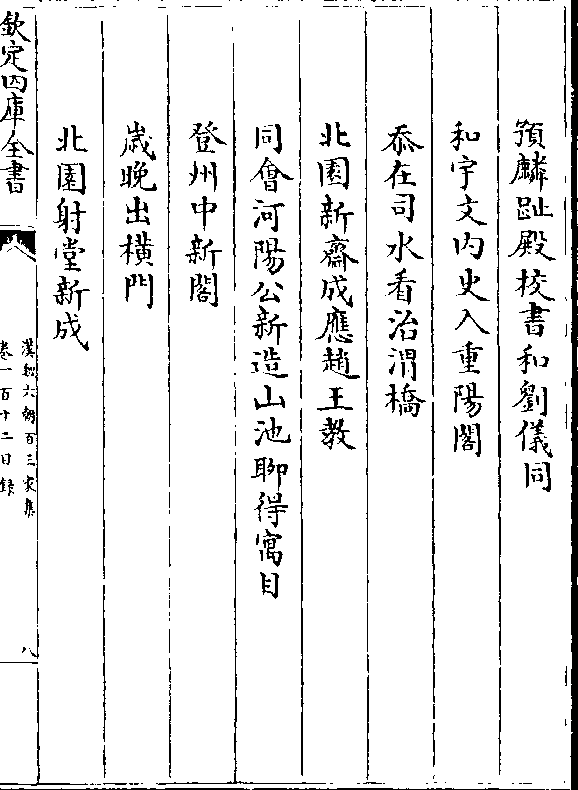 預麟趾殿校書和劉儀同
和宇文内史入重陽閣
忝在司水看治渭橋
北園新齋成應趙王教
同㑹河陽公新造山池聊得寓目
登州中新閣
歳晚出橫門
北園射堂新成
欽定四庫全書
漢魏六朝百三家集
卷一百十二目録
八